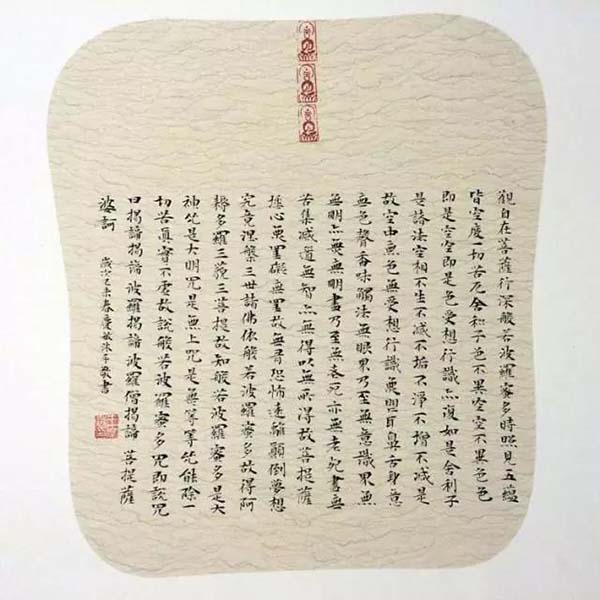 觀自在菩薩行深般若波羅蜜多時照見五蘊
皆空度一切苦厄舍利子色不異空空不異色色
即是空空即是色受想行識亦復如是舍利子
是諸法空相不生不滅不垢不淨不增不減是
故空中無色無受想行識無眼耳鼻舌身意
無色聲香味觸法無眼界乃至無意識界無
無明亦無無明盡乃至無老死亦無老死盡無
苦集滅道無智亦無得以無所得故菩提薩
埵心無罣礙無罣故無有恐怖遠離顛倒夢想
究竟涅槃三世諸佛依般若波羅蜜多故得阿
耨多羅三藐三菩提故知般若波羅蜜多是大
神咒是大明咒是無上咒是無等等咒能除一
切苦真實不虛故說般若波羅蜜多咒即說咒
曰揭諦揭諦波羅揭諦波羅僧揭諦 菩提薩
婆訶
歲次乙未春慶敏沐手敬書